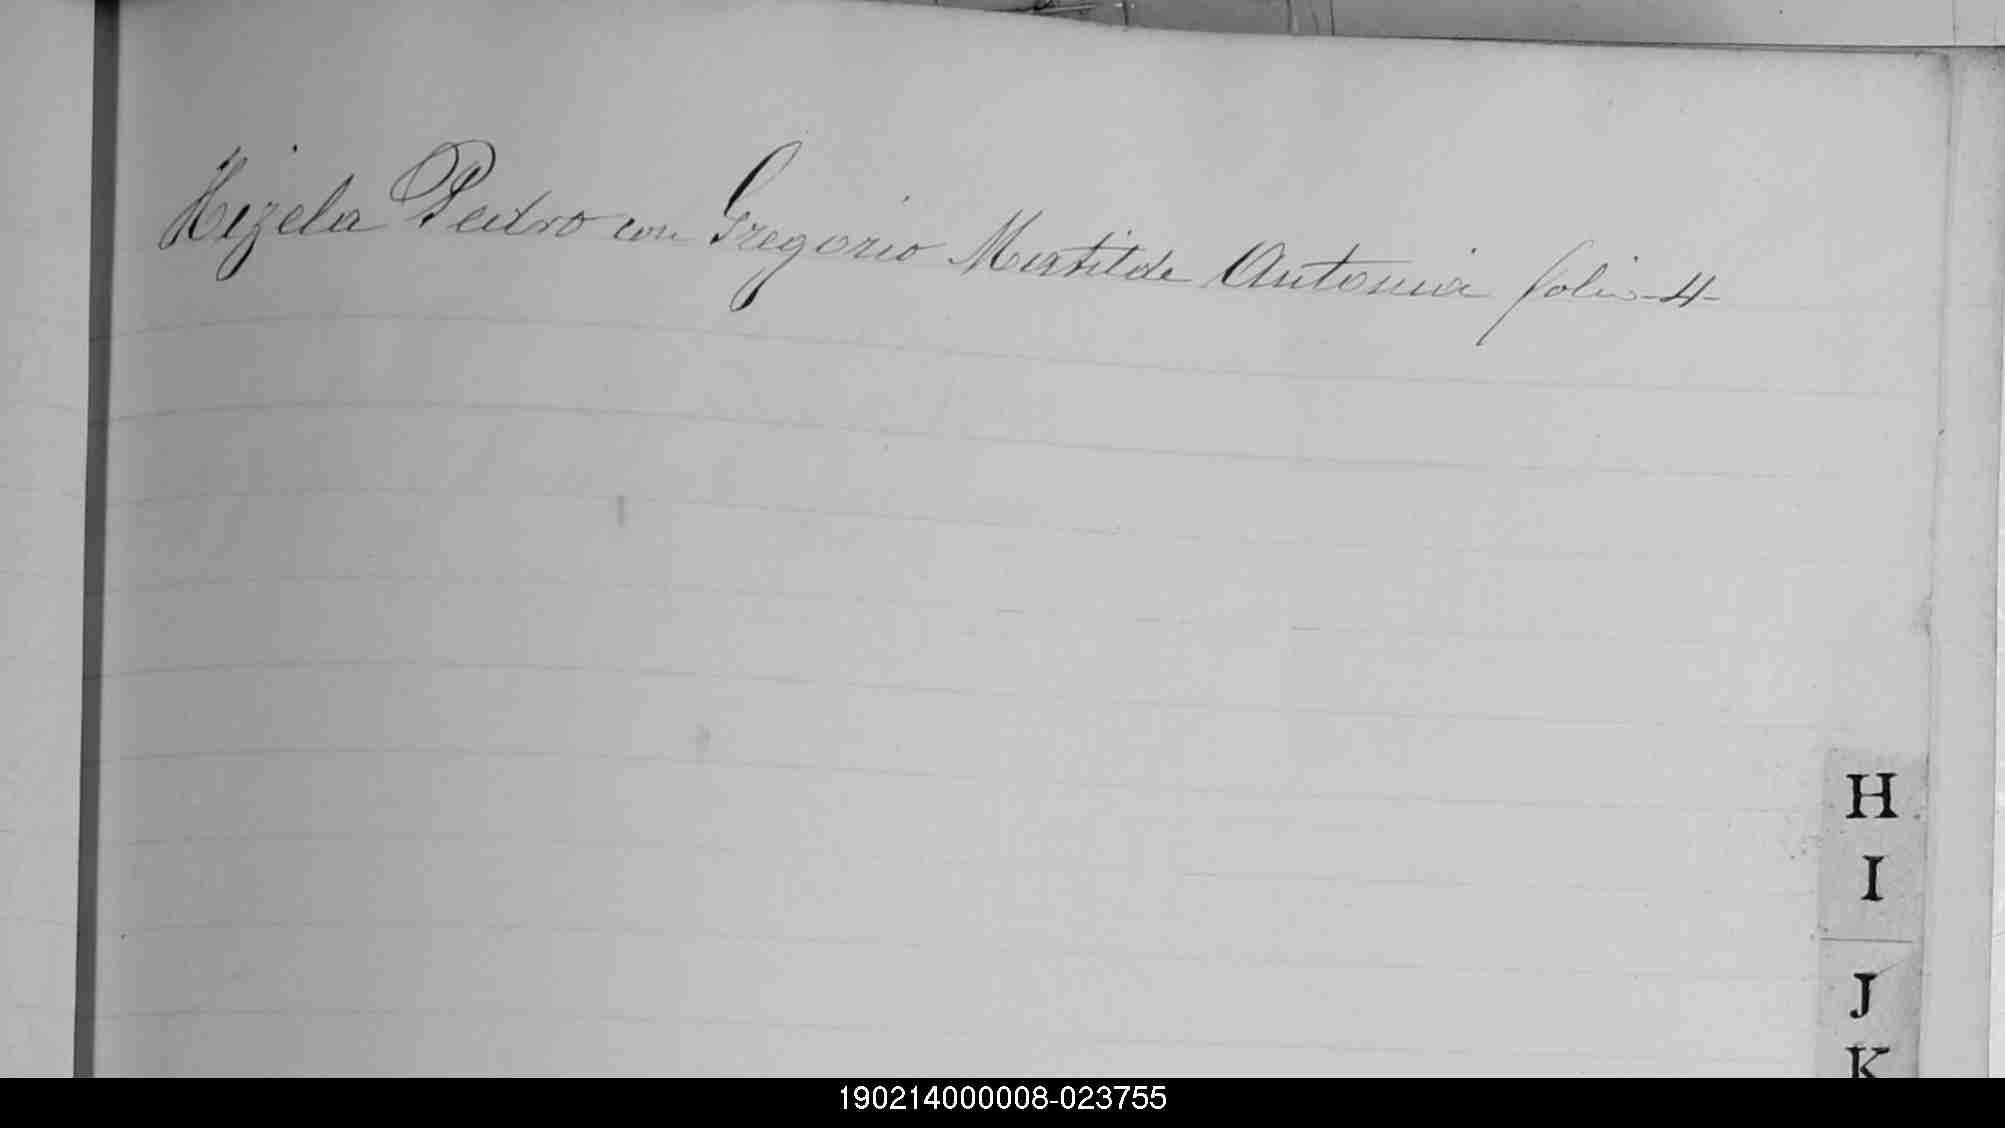 Hizela Pedro con Gregorio Matilde Antonia folio -4-
H
I
J
K
190214000008-023755